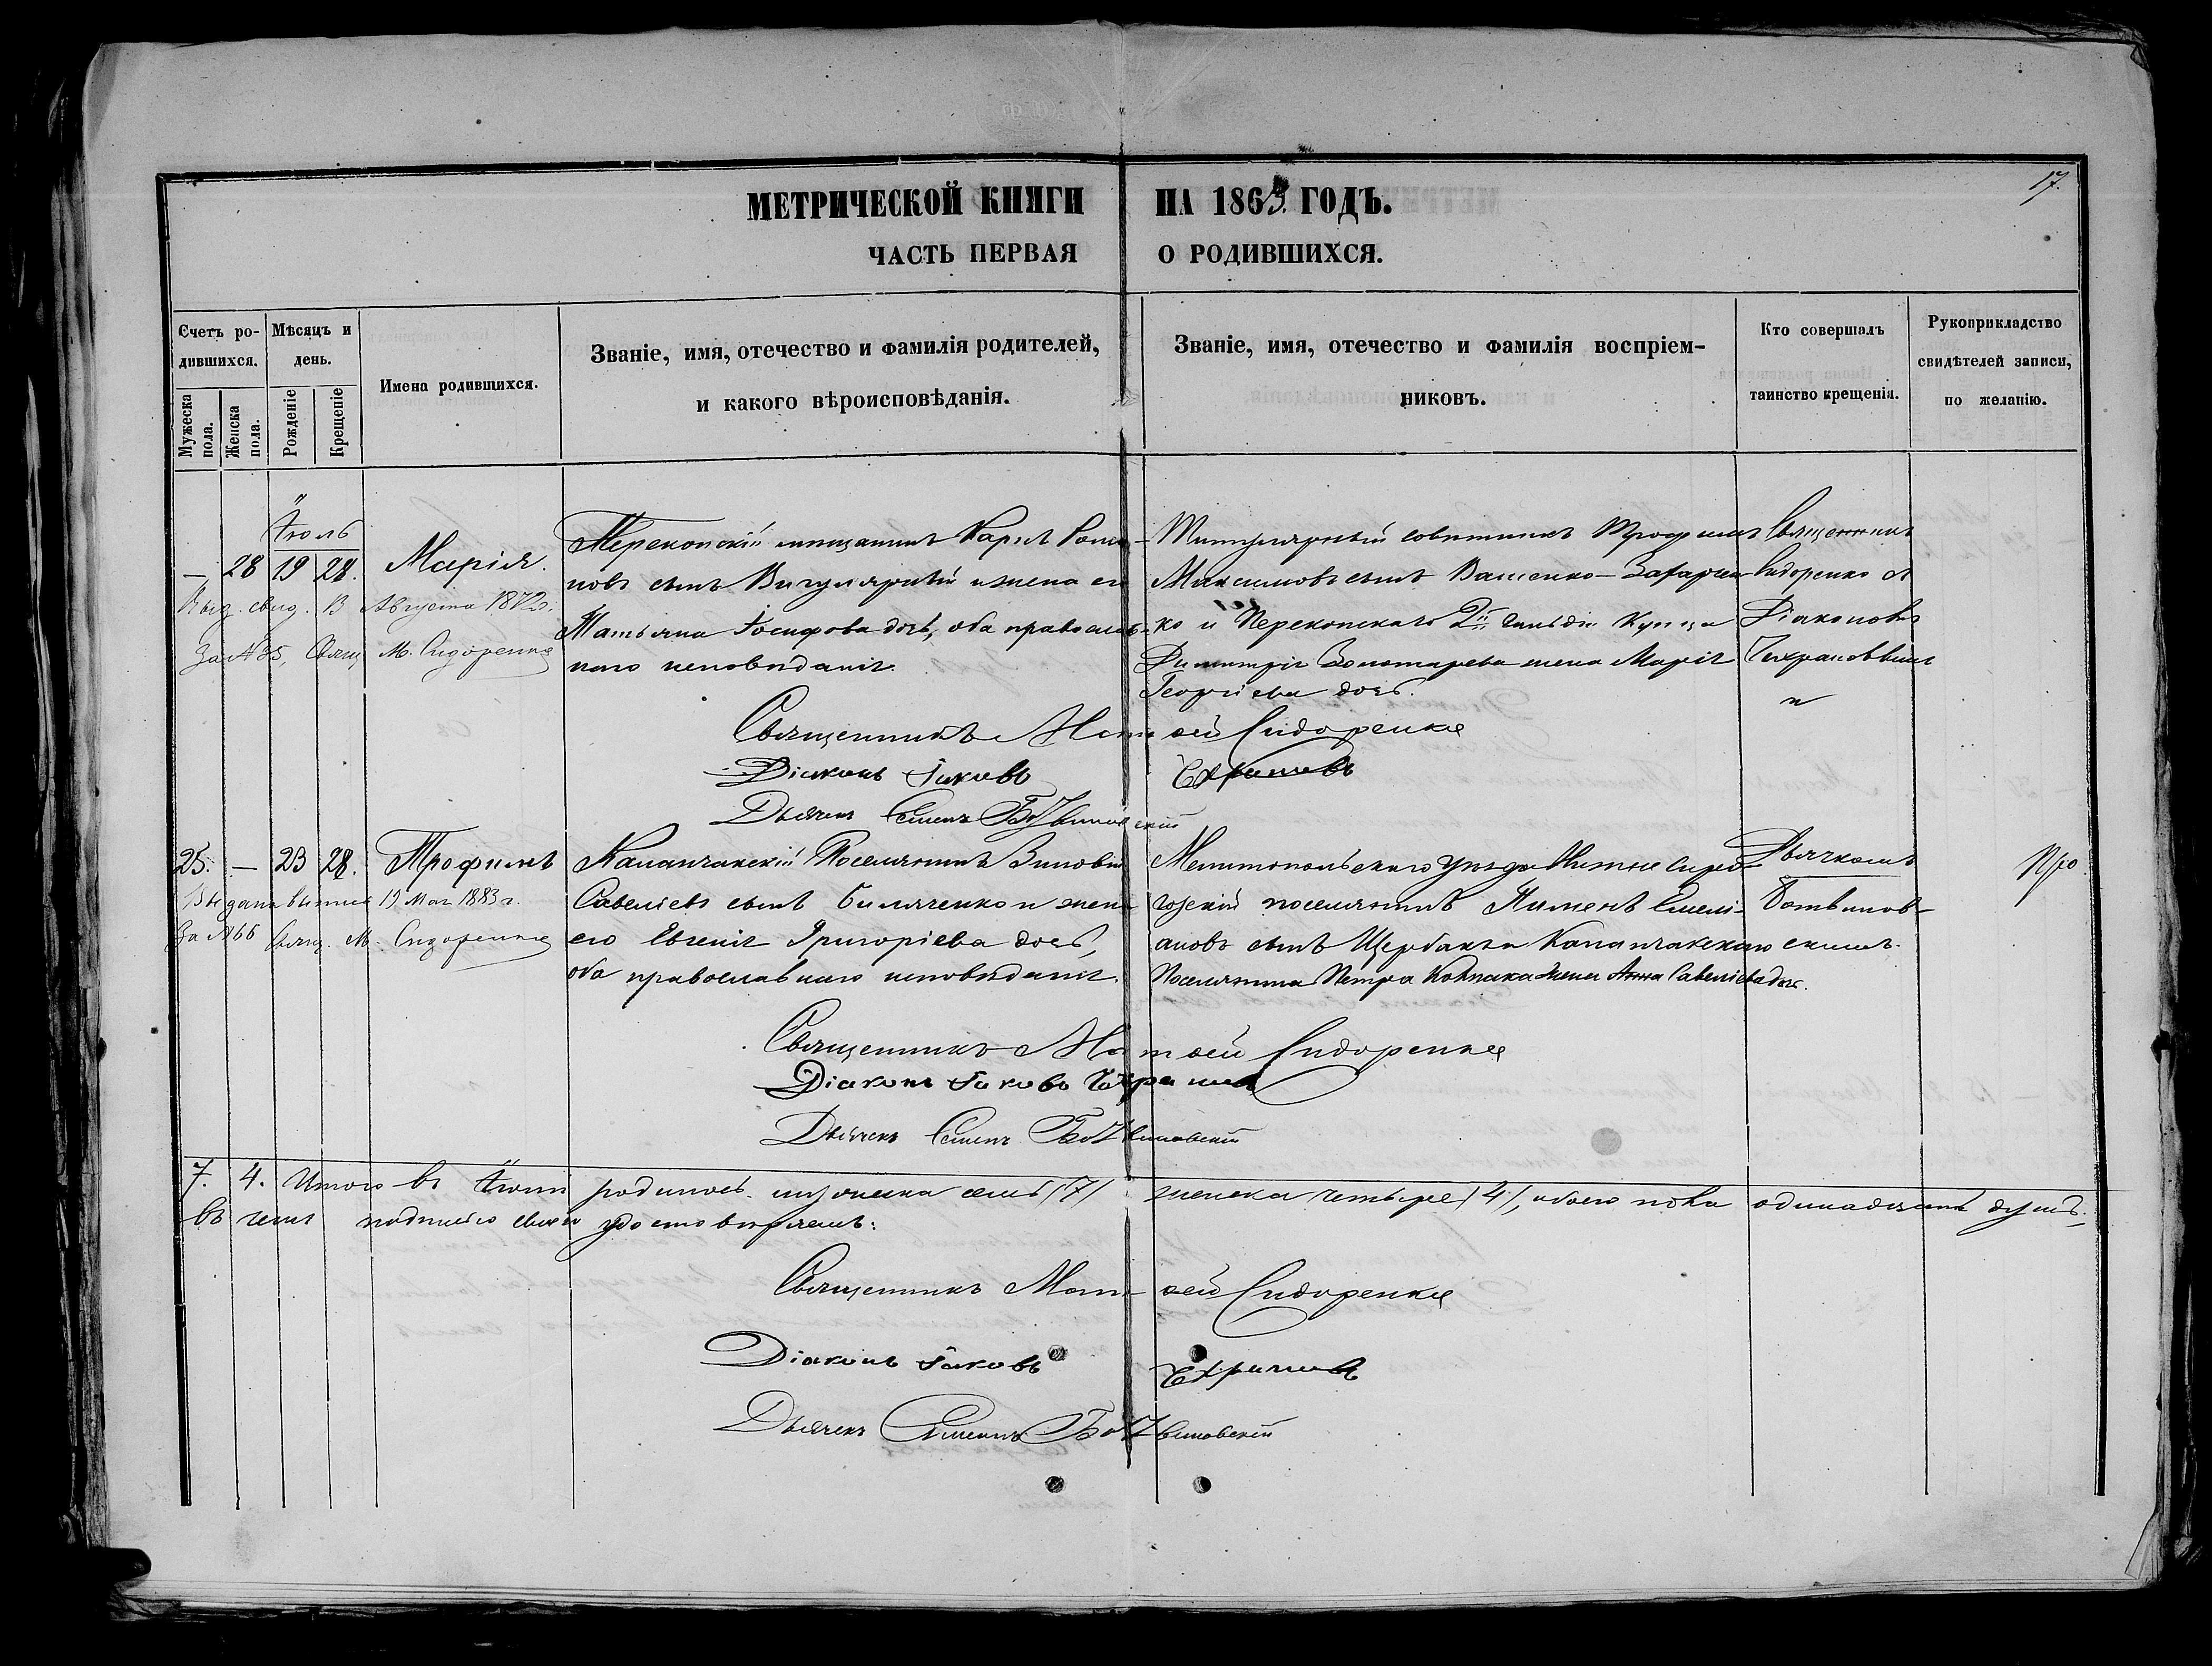 17.
МЕТРИЧЕСКОЙ КНИГИ НА 1863. ГОДЪ.
ЧАСТЬ ПЕРВАЯ О РОДИВШИХСЯ.
Счетъ ро-
дившихся.
Мужеска пола.
Женска пола.
Мѣсяцъ и
день.
Рожденіе
Крещеніе
Имена родившихся.
Званіе, имя, отечество и фамилія родителей,
и какого вѣроисповѣданія.
Званіе, имя, отечество и фамилія воспріем-
никовъ.
Кто совершалъ
таинство крещенія.
Рукоприкладство
свидѣтелей записи,
по желанію.
Іюль
— 28 19 28. Марія.
Выд. свид. 13 Августа 1872 г.
За № 35, Свящ М. Сидоренко
Перекопскій мещанинъ Карпъ
новъ сынъ и жена его
Татьяна Іосифова дочь, оба православ-
наго исповѣданія.
Титулярный совѣтникъ Трофимъ
Максимовъ сынъ Ващенко-Захарчен
ко и Перекопскаго 2й гильдіи Купца
Димитрія Золотарева жена Марія
Георгіева дочь.
Священникъ
Сидоренко съ
Діакономъ
и
Священникъ Матѳей Сидоренко
Діаконъ Іаковъ
Дьячекъ Семенъ Ботвиновскій
25. — 23 28. Трофимъ
Выдана выпись 19 Мая 1883 г.
За № 66 Свящ. М. Сидоренко
Каланчакскій Поселянинъ Зиновій
Савеліевъ сынъ Билаченко и жена
его Евгенія Григоріева дочь,
оба православнаго исповѣданія.
Мелитопольскаго уѣзда Нижне Сиро-
гозскій поселянинъ Пименъ Емелі-
ановъ сынъ Щербакъ и Каланчакскаго
Поселянина Петра Колпака жена Анна Савеліева дочь.
Дьячкомъ
Ботвинов-
скимъ.
Священникъ Матѳей Сидоренко
Діаконъ Іаковъ
Дьячекъ Семенъ Ботвиновскій
7. 4. Итого въ Іюлѣ родилось мужеска семь /7/ женска четыре /4/, обоего пола одинадцать душъ,
въ чемъ подписью своею удостовѣряемъ:
Священникъ Матѳей Сидоренко
Діаконъ Іаковъ
Дьячекъ Семенъ Ботвиновскій